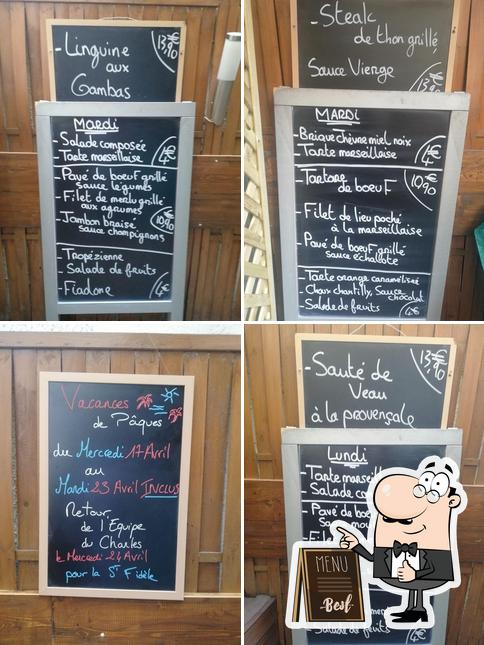 - Linguine
aux
Gambas
13,90€
Mardi
- Salade composée
- Tarte marseillaise
4€
- Pavé de boeuf grillé
sauce légumes
- Filet de merlu grillé
aux agrumes
- Jambon braisé
sauce champignons
10,90€
- Tropézienne
- Salade de fruits
- Fiadone
4€
- Steak
de thon grillé
Sauce Vierge
13,90
MARDI
- Brique chèvre miel noix
- Tarte marseillaise
4€
- Tartare
de boeuf
10,90€
- Filet de lieu poché
à la marseillaise
- Pavé de boeuf grillé
sauce échalote
- Tarte orange caramélisée
- Choux chantilly, Sauce
chocolat
- Salade de fruits
4€
Vacances
de Pâques
du Mercredi 17 Avril
au
Mardi 23 Avril INCLUS
Retour
de l'Equipe
du Charles
le Mercredi 24 Avril
pour la St Fidèle
- Sauté de
Veau
à la provençale
13,90€
Lundi
- Tarte
- Salade
- Pavé de
MENU
Best
Salade de fruits
4€